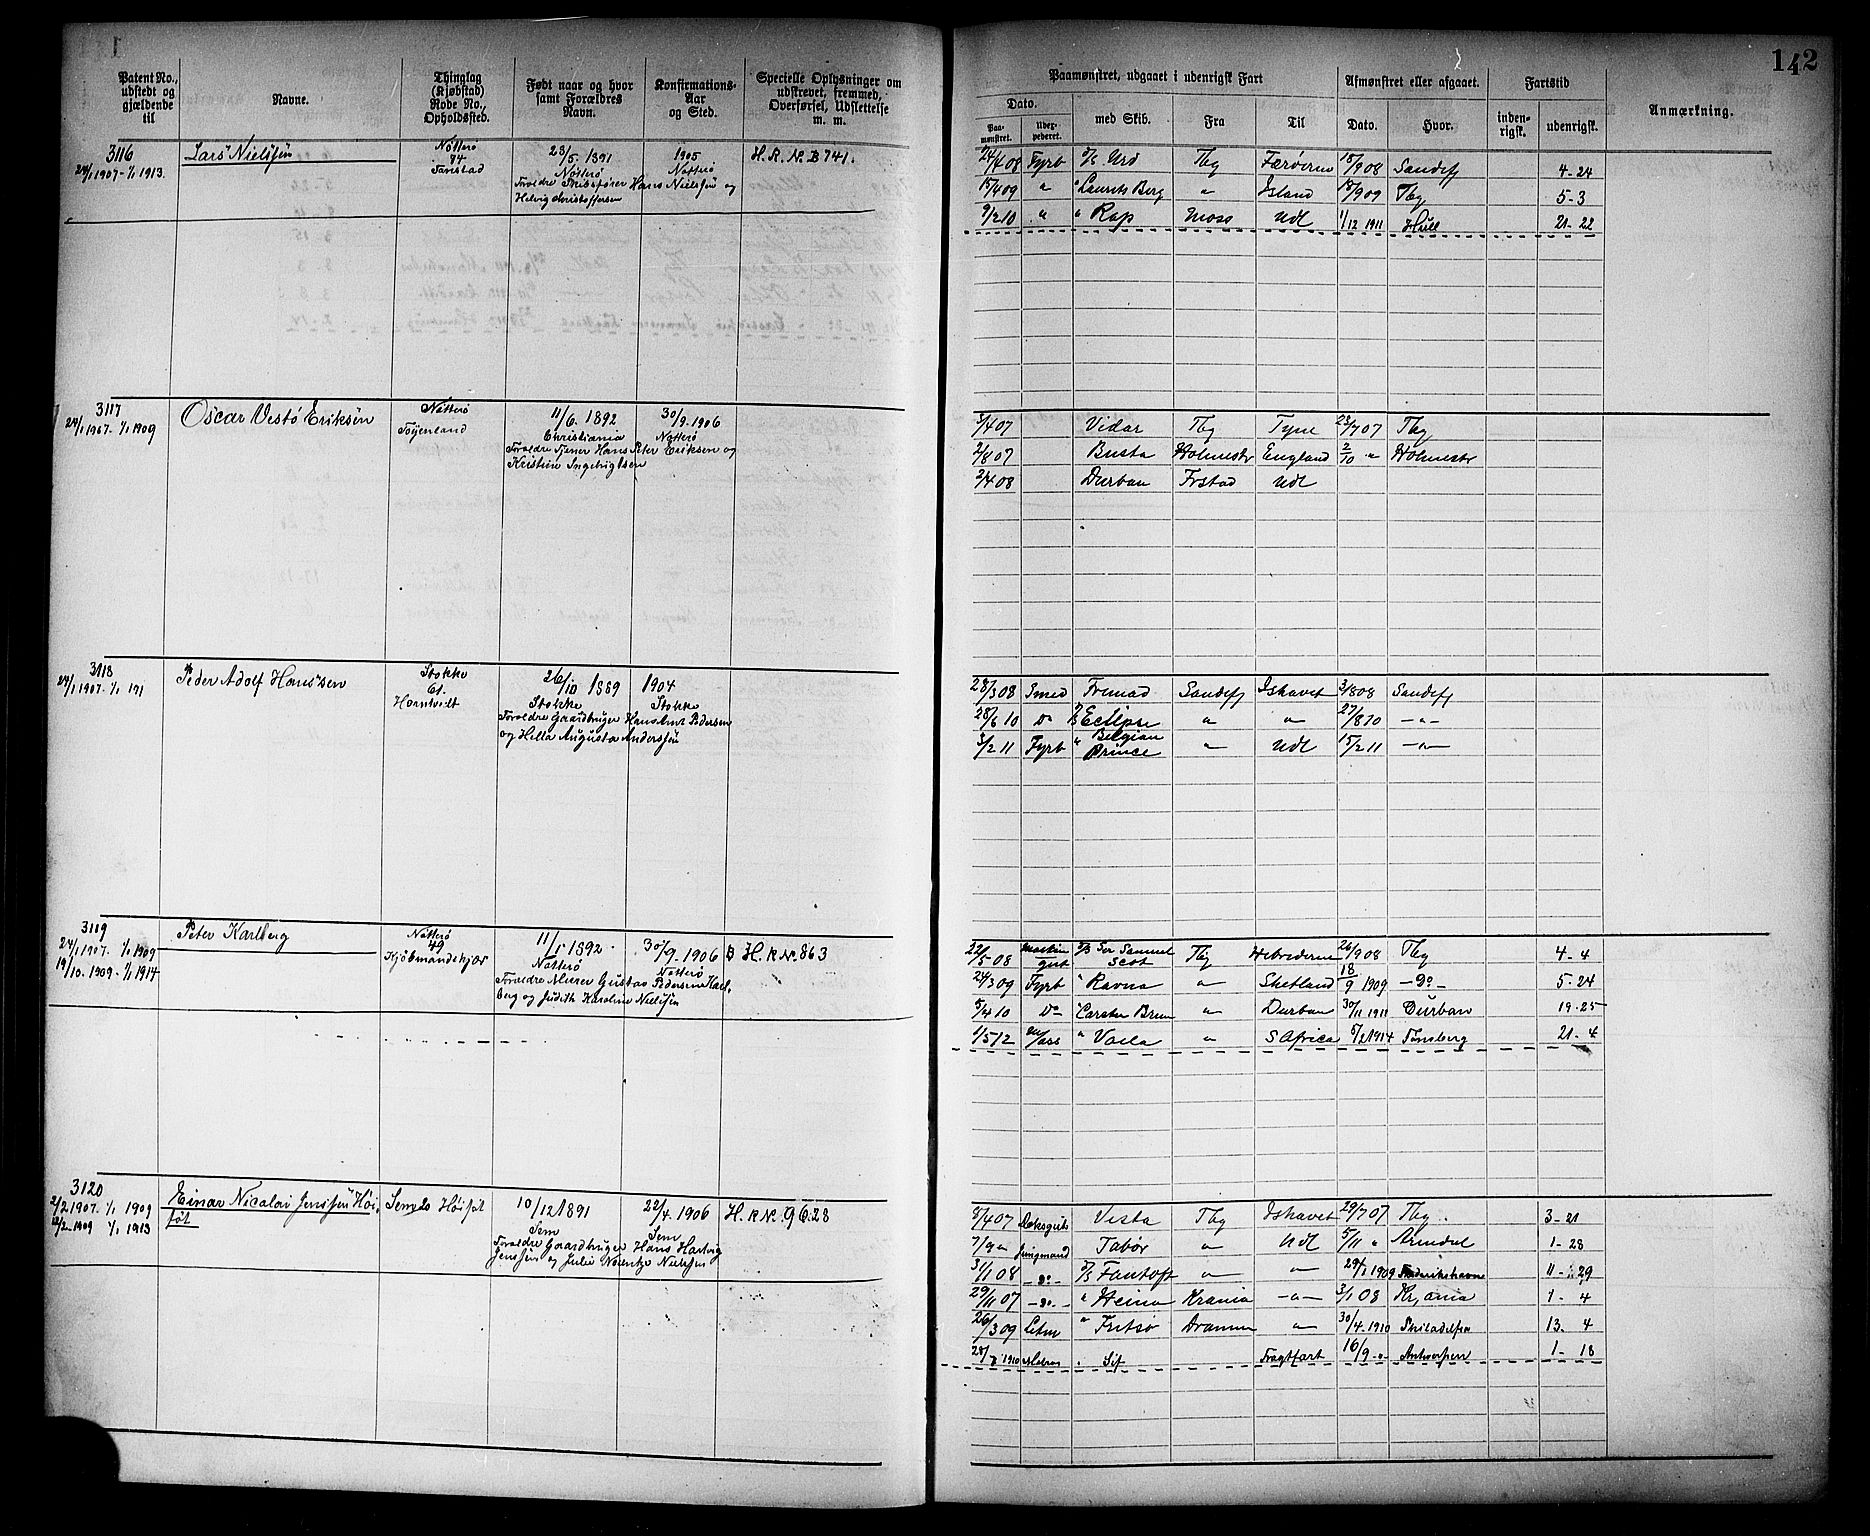 142
Patent No., udstedt og gjældende til
Navne.
Thinglag (Kjøbstad) Rode No., Opholdssted.
Født naar og hvor samt Forældres Navn.
Konfirmations-Aar og Sted.
Specielle Oplysninger om udskrevet, fremmed, Overførsel, Udslettelse m. m.
Paamønstret, udgaaet i udenrigsk Fart
Afmønstret eller afgaaet.
Fartstid
Anmærkning.
Dato.
Paa-mønstret.
med Skib.
Fra
Til
Dato.
Hvor.
inden-rigsk.
udenrigsk.
3116
24/1 1907 - 1/1 1913.
Lars Nielsen
Nøtterø
23/5. 1891
Nøtterø
Forældre Skibsfører Hans Nielsen og
1905
Nøtterø
H. R. N. B 741.
24/4 08 Fyrb D/S Urd Tbg Færøerne 18/9 08 Sandefj 4-24
15/4 09 " " Laurits Berg " Island 18/9 09 Tbg 5-3
9/2 10 " " Rap Moss Udl 1/12 1911 Hull 21-22
3117
24/1 1907 - 1/1 1909
Oscar Vestø Eriksen
Nøtterø
Føjenland
11/6. 1892
Christiania
Forældre Tjener Hans Peter Eriksen og
Kristine Ingebrigtsen
30/9. 1906
Nøtterø
3/4 07 Vidar Tbg Tyne 23/7 07 Tbg
2/8 07 Busta Holmestr England 2/10 " Holmestr
2/4 08 Durban Frstad Udl
3118
24/1 1907 - 1/1 191
Peder Adolf Hanssen
Stokke
61.
26/10 1889
Stokke
Forældre Gaardbruger Hans Arnt Pedersen
og Hella Augusta Anderssen
1904
Stokke
28/3 08 Smed Fremad Sandefj Ishavet 3/8 08 Sandefj
28/6 10 Do D/S Eclipse " " 27/8 10 -"-
3/2 11 Fyrb " Belgian Prince -"- Udl 15/2 11 -"-
3119
24/1 1907. 1/1 1909
19/10. 1909 - 1/1 1914
Peter Karlberg
Nøtterø
49
Kjøbmandskjær
11/1 1892.
Nøtterø
Forældre Murer Gustav Pedersen Karl-
berg og Judith Karoline Nielsen
30/9. 1906
Nøtterø
B H. R. N. 863
22/5 08 Maskingut D/S Sir Samuel Scot Tbg Hebriderne 26/9 08 Tbg 4-4
24/3 09 Fyrb " Ravna " Shetland 18/9 1909 -Do- 5-24
5/4 10 Do " Carsten Bruun " Durban 30/11 1911 Durban 19-25
1/5 12 " Vaila " S Africa 5/2 1914 Tønsberg 21-4
3120
2/2 1907. 1/1 1909
12/2. 1909 1/1 1913
Einar Nicolai Jenssen Høi-
jøt
Sem
10/12 1891
Sem
Forældre Gaardbruger Hans Hartvig
Jenssen og Julie Nielsen
22/4. 1906
Sem
H. R. N. 9628
8/4 07 Dæksgut Vesta Tbg Ishavet 29/7 07 Tbg. 3-21
7/9 " Jungmand Tabor " Udl 5/11 " Arendal 1-28
31/1 08 -Do- D/S Fantoft " -"- 29/1 1909 Frederikshavn 11-29
29/11 07 -Do- " Heina Krania -"- 3/1 08 Kr,ania 1-4
26/3 09 Letm " Fritzø Drammen " 30/4 1910 Philadelfia 13-4
28/7 1910 Matros " Sif Fragtfart 16/9 -"- Antwerpen 1-18